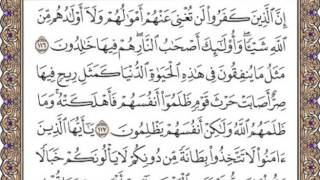 إِنَّ ٱلَّذِينَ كَفَرُوا۟ لَن تُغْنِىَ عَنْهُمْ أَمْوَٰلُهُمْ وَلَآ أَوْلَٰدُهُم مِّنَ
ٱللَّهِ شَيْـًٔا ۖ وَأُو۟لَٰٓئِكَ أَصْحَٰبُ ٱلنَّارِ ۚ هُمْ فِيهَا خَٰلِدُونَ ١١٦
مَثَلُ مَا يُنفِقُونَ فِى هَٰذِهِ ٱلْحَيَوٰةِ ٱلدُّنْيَا كَمَثَلِ رِيحٍ فِيهَا
صِرٌّ أَصَابَتْ حَرْثَ قَوْمٍ ظَلَمُوٓا۟ أَنفُسَهُمْ فَأَهْلَكَتْهُ ۚ وَمَا
ظَلَمَهُمُ ٱللَّهُ وَلَٰكِنْ أَنفُسَهُمْ يَظْلِمُونَ ١١٧ يَٰٓأَيُّهَا ٱلَّذِينَ
ءَامَنُوا۟ لَا تَتَّخِذُوا۟ بِطَانَةً مِّن دُونِكُمْ لَا يَأْلُونَكُمْ خَبَالًا